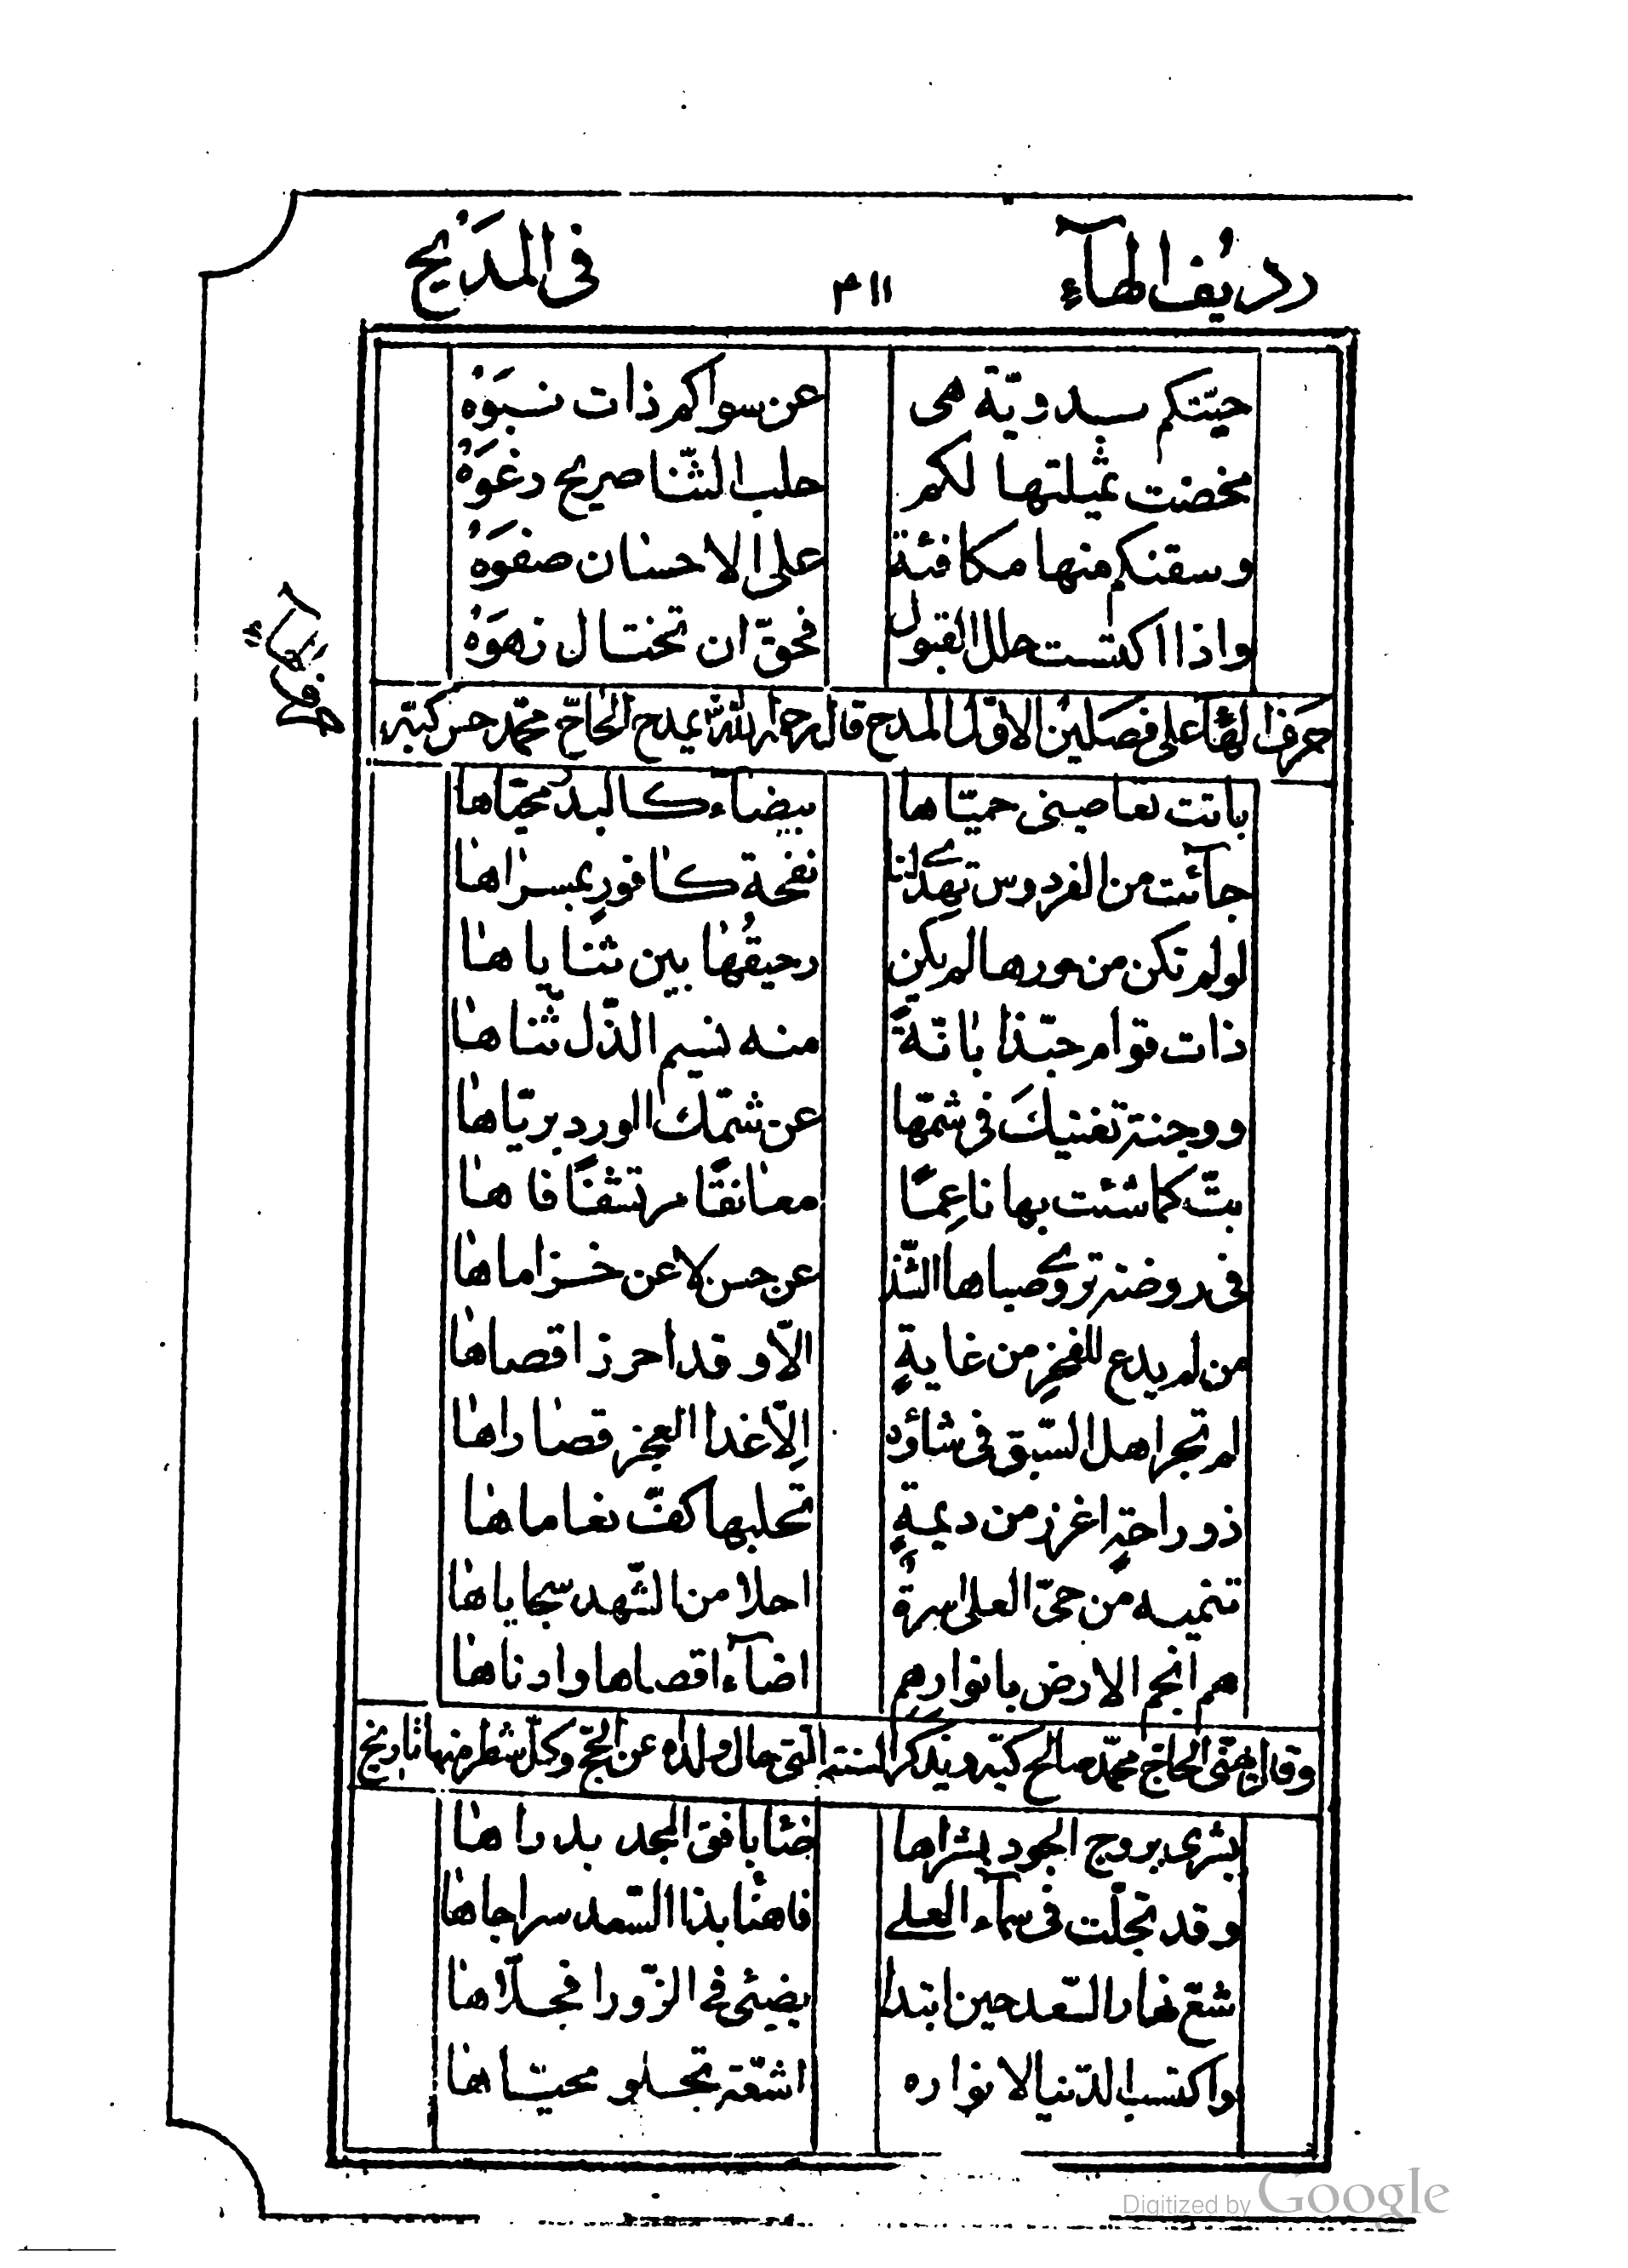 رديف الهآء ٣١١ في المديح
حيّتكم بدويّة هى عن سواكم ذات نبوه
مخضت ثميلتها لكم حلب الثّنا صريح رغوه
وسقتكم منها مكافئة على الاحسان صفوه
واذا اكتست حلل القبول فحقّ ان تختال زهوه
حرف الهآء
حرف الهآء على فصلين الاوّل المدح قال رحمه الله يمدح الحاجّ محمّد حسن كبّه
باتت تعاصينى حميّاها بيضاء كالبدر محيّاها
جآئت من الفردوس تهدى لنا نفحة كافورٍ بمسراها
لو لم تكن من حورها لم يكن رحيقُها بين ثناياها
ذات قوام حبّذا بانةً منه نسيم الدّل ثنّاها
ووجنة تغنيكَ فى شمّها عن شمّك الورد بريّاها
بتّ كما شئت بها ناعِمًا معانقًا مرتشفًا فاها
فى روضة تروى صباها الشّذ عن حسن لا عن خزاماها
من لم يدع للفخرِ من غايةٍ الّا وقد احرز اقصاها
لم تجر اهل السّبق فى شاؤه إلّا غدا العجز قصاراها
ذو راحةٍ اغزر من ديمةٍ تحلبها كفّ نعاماها
تنميه من حىّ العلى اسرةٌ احلا من الشّهد سجاياها
هم انجم الارض بانوارهم اضآء اقصاها وادناها
وقال يهنّى الحاجّ محمّد صالح كبّه ويذكر السنة التى حال ولداه عن الحجّ وكلّ شطر منها تاريخ
بشرى بروج الجود بشراها ضئا بافق المجد بدراها
وقد تجلّت فى سمآء العلى فاهنا بذا السّعد سراجاها
شعّ نهار السّعد حين ابتدا يضيئى فى الزّورا فجلّاها
واكتسب الدّنيا لانواره اشعّة تجلو محيّاها
Digitized by Google